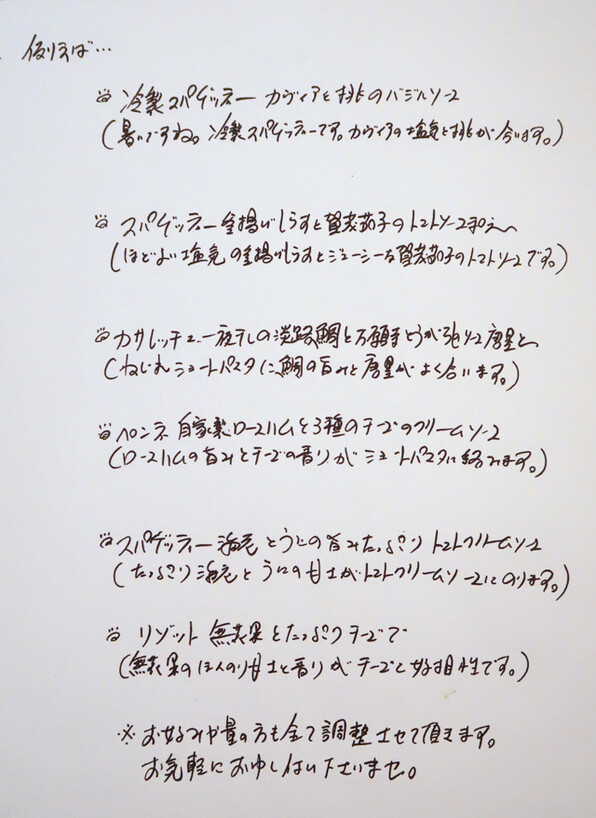 例えば…
冷製スパゲッティー カヴィアと桃のバジルソース
(暑いですね。冷製スパゲッティーです。カヴィアの塩気と桃が合います。)
スパゲッティー 釜揚げしらすと賀茂茄子のトマトソース和え
(ほどよい塩気の釜揚げしらすとジューシーな賀茂茄子のトマトソースです。)
カサレッチェ 一夜干しの淡路鯛と万願寺とうがらしソース 唐墨と
(ねじれショートパスタに鯛の旨みと唐墨がよく合います。)
ペンネ 自家製ロースハムと3種のチーズのクリームソース
(ロースハムの旨みとチーズの香りがショートパスタに絡みます。)
スパゲッティー 海老とうにの旨みたっぷり トマトクリームソース
(たっぷり海老とうにの甘さがトマトクリームソースにのります。)
リゾット 無花果とたっぷりチーズで
(無花果のほんのり甘さと香りがチーズと好相性です。)
※お好みや量の方も全て調整させて頂きます。
お気軽にお申し付け下さいませ。